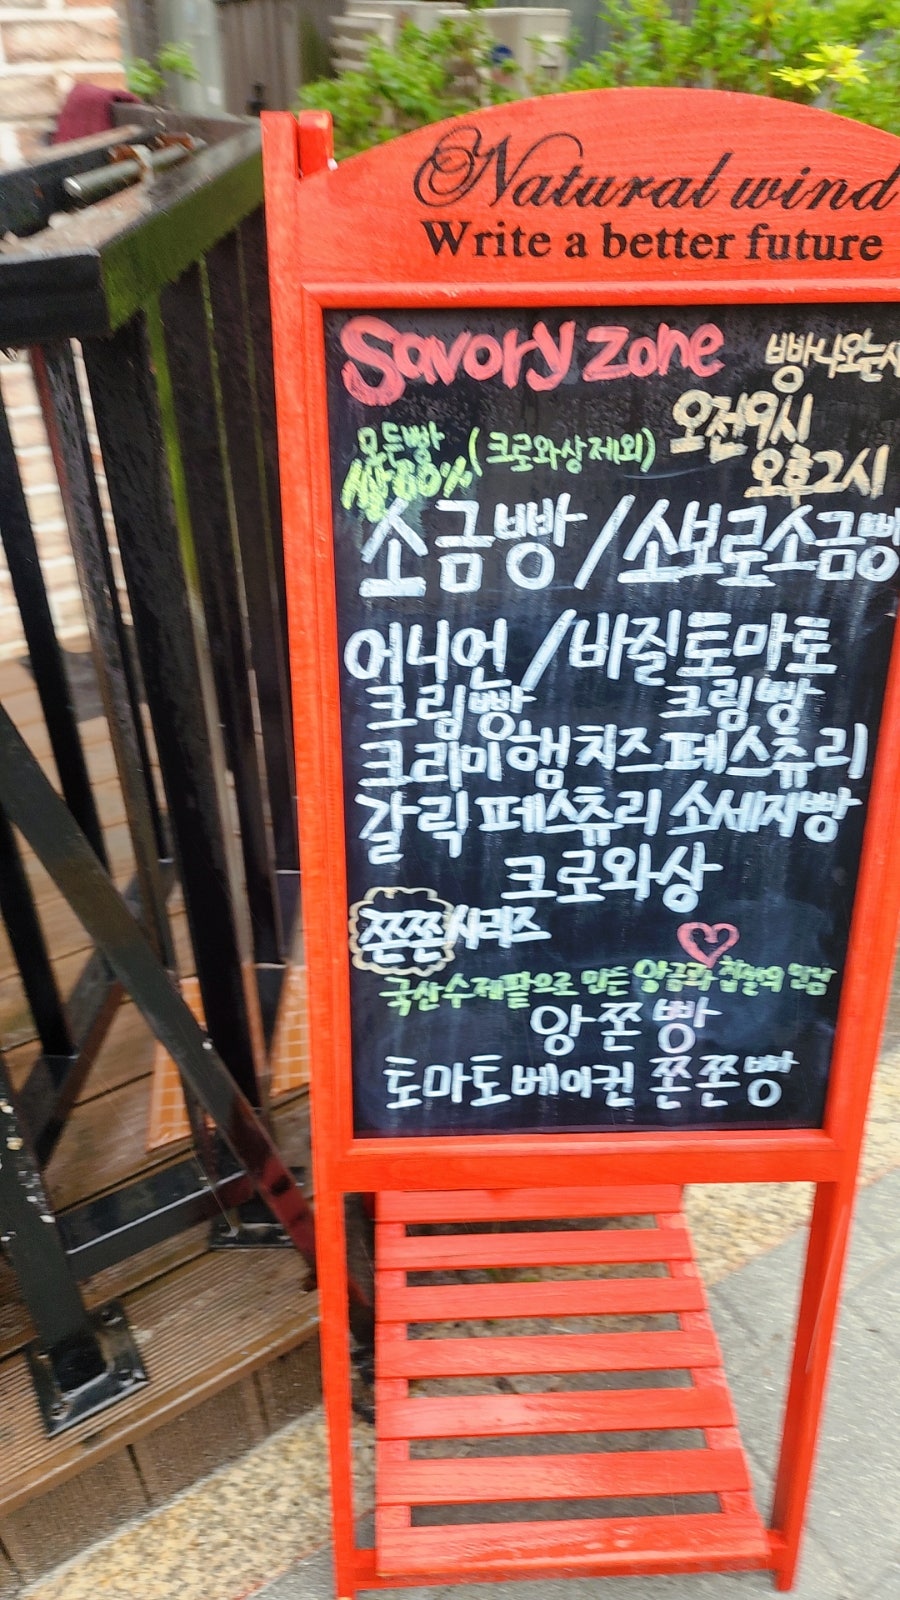 Natural wind
Write a better future
Savory zone
빵나오는시
오전9시
오후2시
모든빵 (크로와상제외)
쌀80%
소금빵 / 소보로소금빵
어니언 / 바질토마토
크림빵 크림빵
크리미햄치즈페스츄리
갈릭페스츄리 소세지빵
크로와상
쫀쫀시리즈
국산수제팥으로 만든 앙금과 찹쌀의 만남
앙쫀빵
토마토베이컨 쫀쫀빵